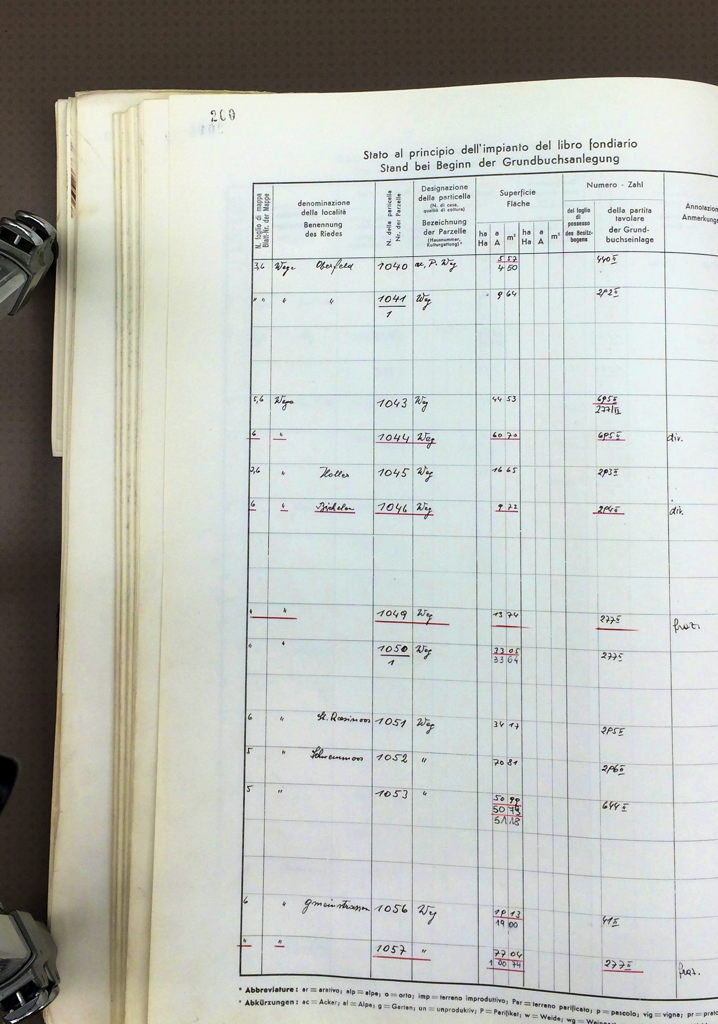 200
Stato al principio dell'impianto del libro fondiario
Stand bei Beginn der Grundbuchsanlegung
N. foglio di mappa
Blatt-Nr. der Mappe
denominazione della località
Benennung des Riedes
N. della particella
Nr. der Parzelle
Designazione della particella
(N. di casa, qualità di coltura)
Bezeichnung der Parzelle
(Hausnummer, Kulturgattung)
Superficie
Fläche
ha Ha a A m² ha Ha a A m²
Numero - Zahl
del foglio di possesso
des Besitz-bogens
della partita tavolare
der Grund-buchseinlage
Annotazion
Anmerkung
3,6 Wege Oberfeld 1040 Weg 5 57 440 II
4 50
" " " 1041 Weg 9 64 292 II
1
5,6 Wege 1043 Weg 44 53 695 II
277/II
6 " 1044 Weg 60 70 695 II div.
" 1045 Weg 16 65 293 II
6 " 1046 Weg 9 72 294 II div.
" " 1049 Weg 13 74 277 II fraz.
" " 1050 Weg 33 05 277 II
1 33 64
6 " 1051 Weg 34 17 295 II
5 " 1052 " 70 81 296 II
5 " 1053 " 50 99 644 II
50 79
51 18
6 " 1056 Weg 19 13 41 II
19 00
" " 1057 " 77 04 277 II fraz.
1 00 74
* Abbreviature: ar = arativo; alp = alpe; o = orto; imp = terreno improduttivo; Par = terreno parificato; p = pascolo; vig = vigne; pr = prato
* Abkürzungen: ac = Acker; al = Alpe; g = Garten; un = unproduktiv; P = Parifikat; w = Weide; wg =